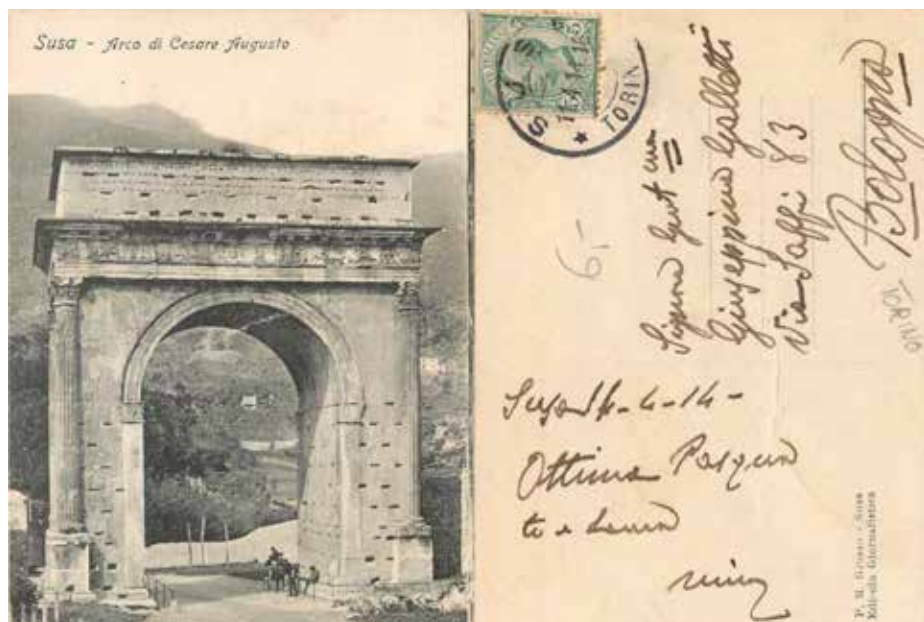 Susa - Arco di Cesare Augusto
5
SUSA
TORIN
Signora Gent ma
Giuseppina Galletti
Via Saffi 83
Bologna
6,-
TORINO
Susa 4-14-
Ottima Pasqua
te e
P. M. Grosso - Susa
Giornalistica